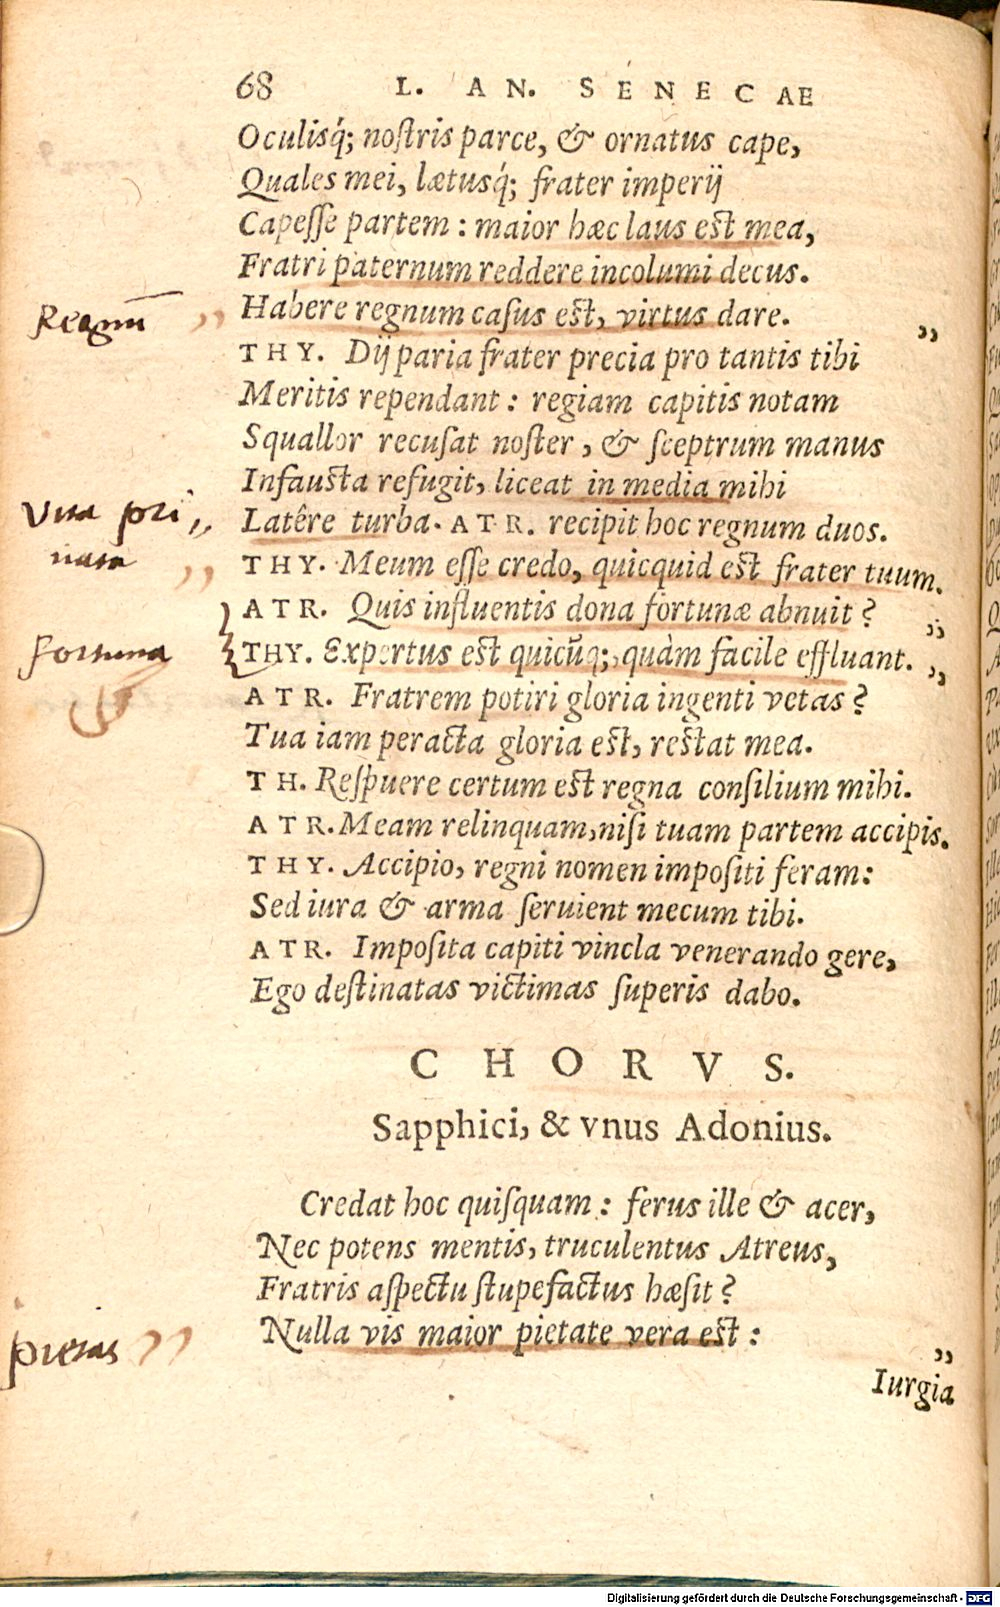 68 L. AN. SENECAE
Oculisq́; noſtris parce, & ornatus cape,
Quales mei, lætusq́; frater imperij
Capeſſe partem : maior hæc laus eſt mea,
Fratri paternum reddere incolumi decus.
Regnū ,, Habere regnum caſus eſt, virtus dare. ,,
THY. Dij paria frater precia pro tantis tibi
Meritis rependant : regiam capitis notam
Squallor recuſat noſter, & ſceptrum manus
Infauſta refugit, liceat in media mihi
Vita pri ,, Latêre turba. ATR. recipit hoc regnum duos.
uata ,, THY. Meum eſſe credo, quicquid eſt frater tuum.
ATR. Quis influentis dona fortunæ abnuit ? ,,
Fortuna THY. Expertus eſt quicūq;, quàm facile effluant. ,,
ATR. Fratrem potiri gloria ingenti vetas ?
Tua iam peracta gloria eſt, reſtat mea.
TH. Reſpuere certum eſt regna conſilium mihi.
ATR. Meam relinquam, niſi tuam partem accipis.
THY. Accipio, regni nomen impoſiti feram:
Sed iura & arma ſeruient mecum tibi.
ATR. Impoſita capiti vincla venerando gere,
Ego deſtinatas victimas ſuperis dabo.
CHORVS.
Sapphici, & vnus Adonius.
Credat hoc quiſquam : ferus ille & acer,
Nec potens mentis, truculentus Atreus,
Fratris aſpectu ſtupefactus hæſit ?
pietas ,, Nulla vis maior pietate vera eſt : ,,
Iurgia
Digitalisierung gefördert durch die Deutsche Forschungsgemeinschaft - DFG